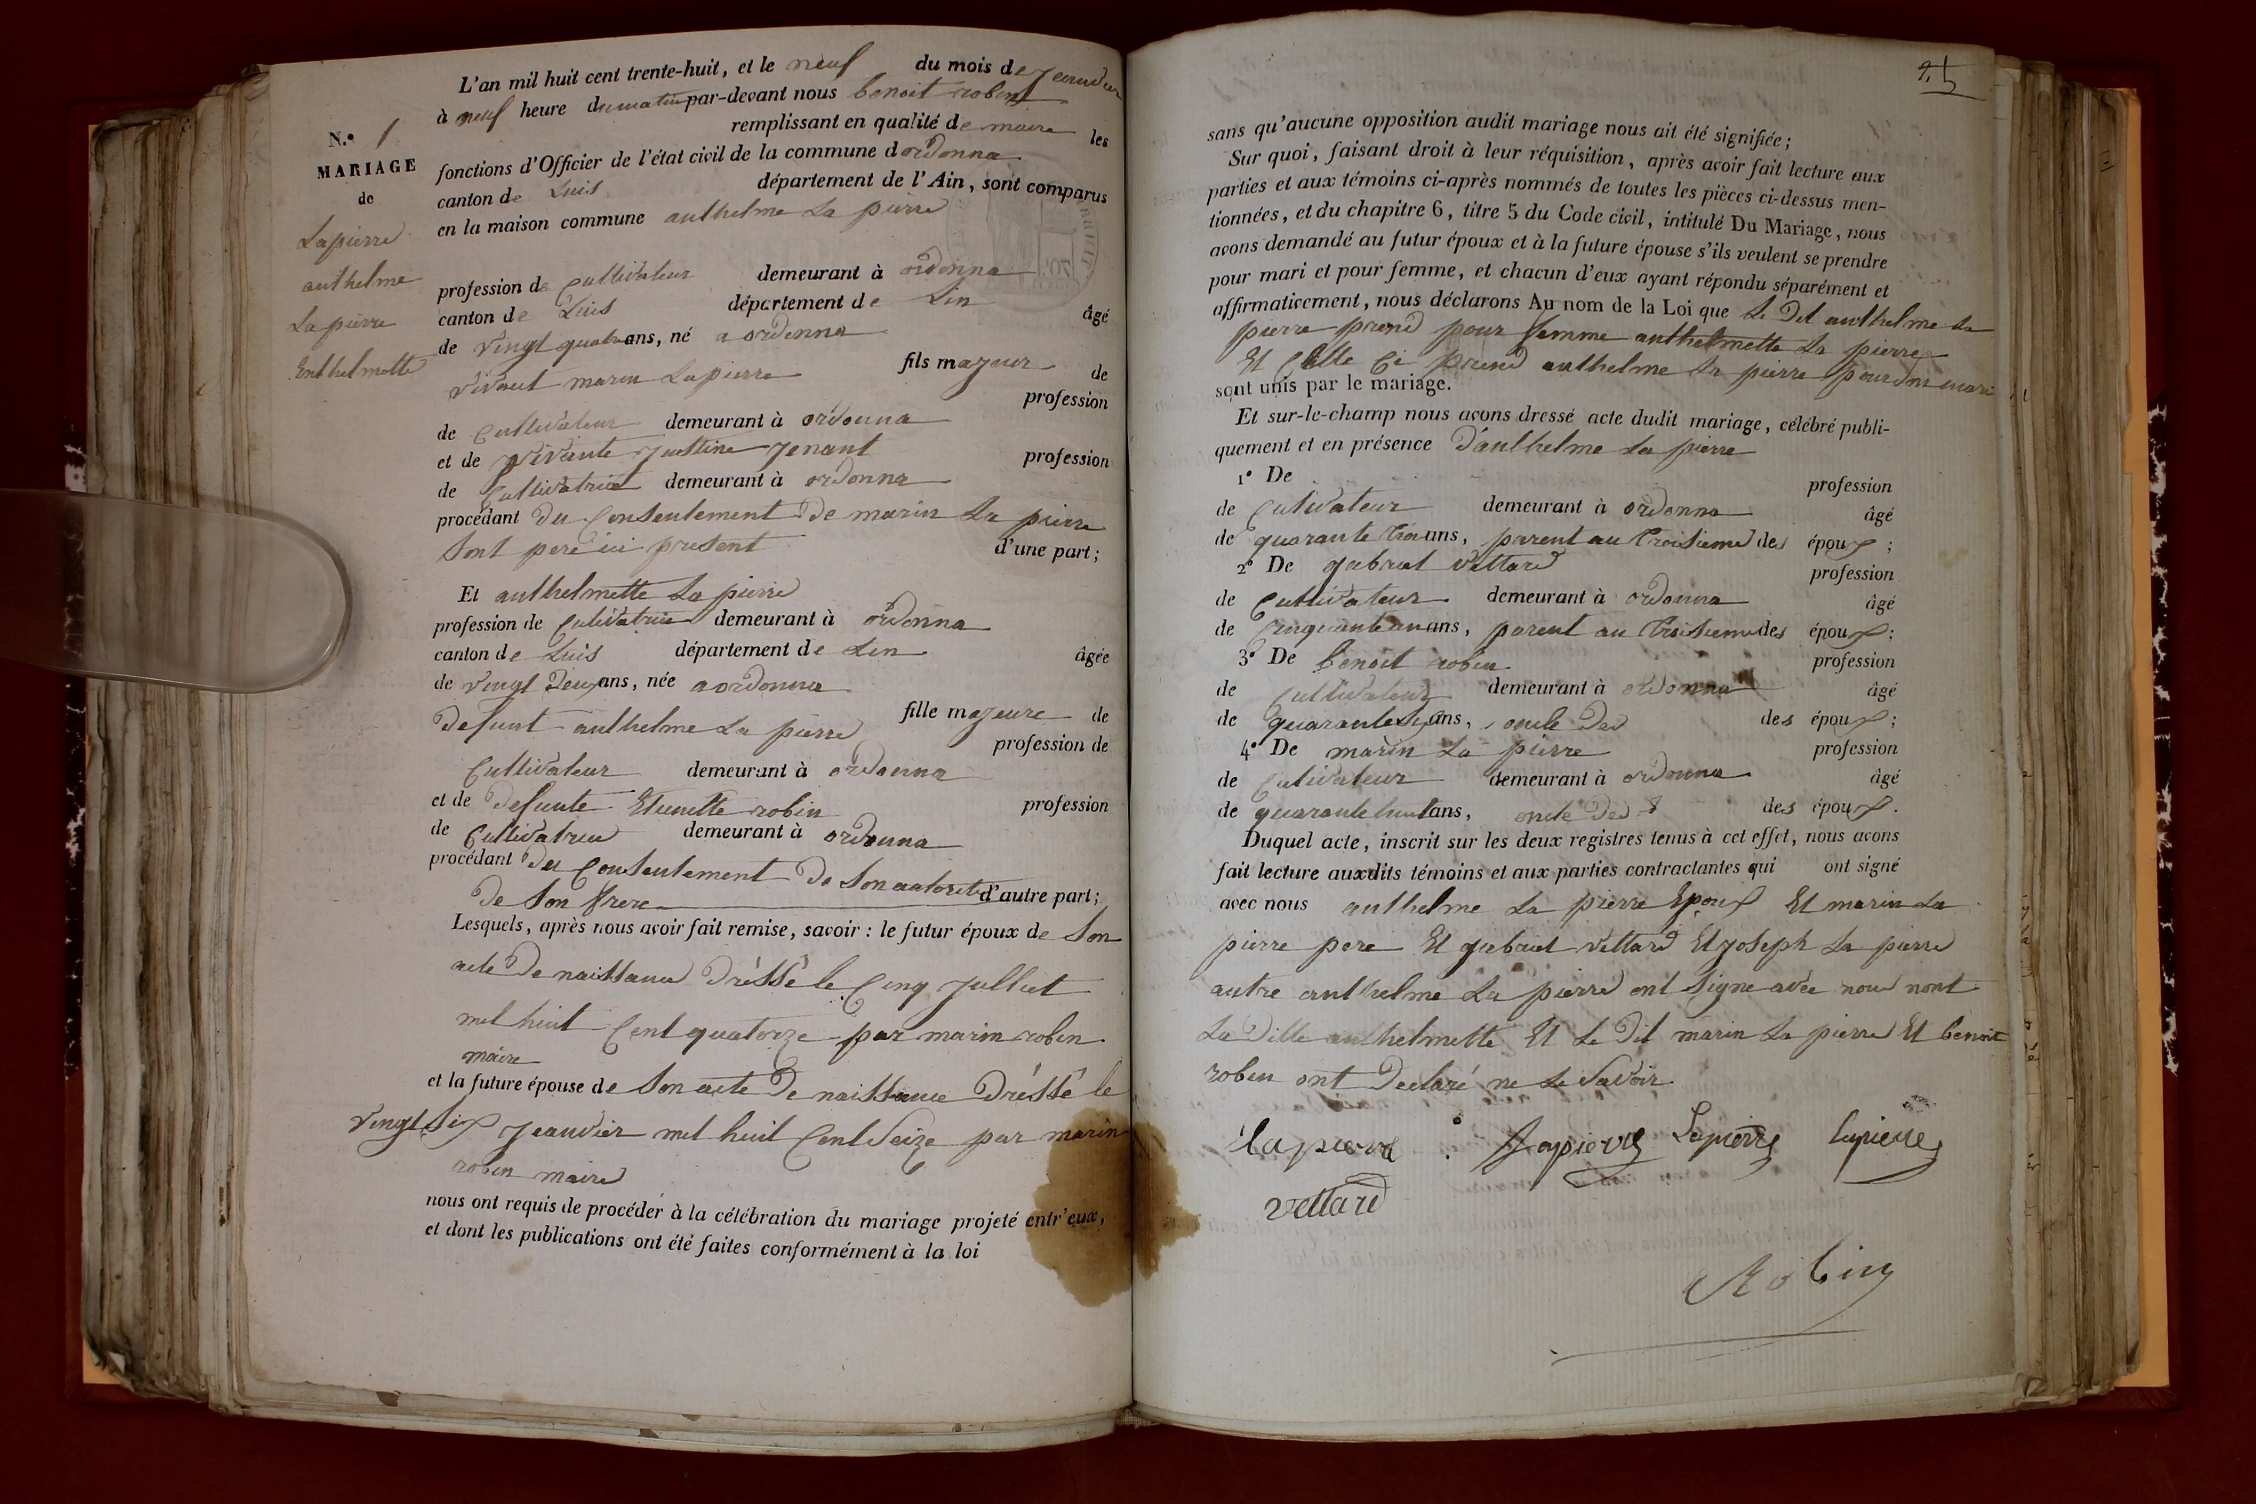 L'an mil huit cent trente-huit, et le neuf du mois de jeanvier
à neuf heure du matin par-devant nous benoit robin
remplissant en qualité de maire les
fonctions d'Officier de l'état civil de la commune dordonna
canton de Luis département de l'Ain, sont comparus
en la maison commune anthelme La pierre
N.º 1
MARIAGE
de
Lapierre
anthelme
La pierre
Enthelmette
profession de Cultivateur demeurant à ordonna
canton de Luis département de Lin âgé
de vingt quatre ans, né a ordonna
fils majeur de
vivant marin Lapierre profession
de Cultivateur demeurant à ordonna
et de vivante justine jenant profession
de Cultivatrice demeurant à ordonna
procédant du Consentement De marin La pierre
Sont pere ici present d'une part;
Et anthelmette La pierre
profession de Cultivatrice demeurant à ordonna
canton de Luis département de Lin âgée
de vingt Deux ans, née a ordonna
fille majeure de
Defunt anthelme La pierre profession de
Cultivateur demeurant à ordonna
et de Defunte Etienette robin profession
de Cultivatrice demeurant à ordonna
procédant Du Consentement De Son autorité
De Son frere d'autre part;
Lesquels, après nous avoir fait remise, savoir : le futur époux de Son
acte De naissance Dréssé le Cinq Julliet
mil huit Cent quatorze par marin robin
maire
et la future épouse de Son acte De naissance Dréssé le
vingt Six Jeanvier mil huit Cent Seize par marin
robin maire
nous ont requis de procéder à la célébration du mariage projeté entr'eux,
et dont les publications ont été faites conformément à la loi
25
sans qu'aucune opposition audit mariage nous ait été signifiée;
Sur quoi, faisant droit à leur réquisition, après avoir fait lecture aux
parties et aux témoins ci-après nommés de toutes les pièces ci-dessus men-
tionnées, et du chapitre 6, titre 5 du Code civil, intitulé Du Mariage, nous
avons demandé au futur époux et à la future épouse s'ils veulent se prendre
pour mari et pour femme, et chacun d'eux ayant répondu séparément et
affirmativement, nous déclarons Au nom de la Loi que Le Dit anthelme La
pierre prend pour femme anthelmette La pierre
Et Celle Ci prend anthelme La pierre pour Son mari
sont unis par le mariage.
Et sur-le-champ nous avons dressé acte dudit mariage, célébré publi-
quement et en présence D'anthelme La pierre
1º De profession
de Cultivateur demeurant à ordonna âgé
de quarante trois ans, parent au troisieme des époux;
2º De gabriel vettard profession
de Cultivateur demeurant à ordonna âgé
de Cinquante un ans, parent au troisieme des époux;
3º De benoit robin profession
de Cultivateur demeurant à ordonna âgé
de quarante Six ans, oncle Des des époux;
4º De marin La pierre profession
de Cultivateur demeurant à ordonna âgé
de quarante huit ans, oncle Des des époux.
Duquel acte, inscrit sur les deux registres tenus à cet effet, nous avons
fait lecture auxdits témoins et aux parties contractantes qui ont signé
avec nous anthelme La pierre Epoux Et marin La
pierre pere Et gabriel vettard Et joseph La pierre
autre anthelme La pierre ont Signe avec nous nont
La Ditte anthelmette Et Le Dit marin La pierre Et benoit
robin ont Declaré ne Le Savoir
Lapierre Lapierre Lapierre Lapierre
vettard
Robin